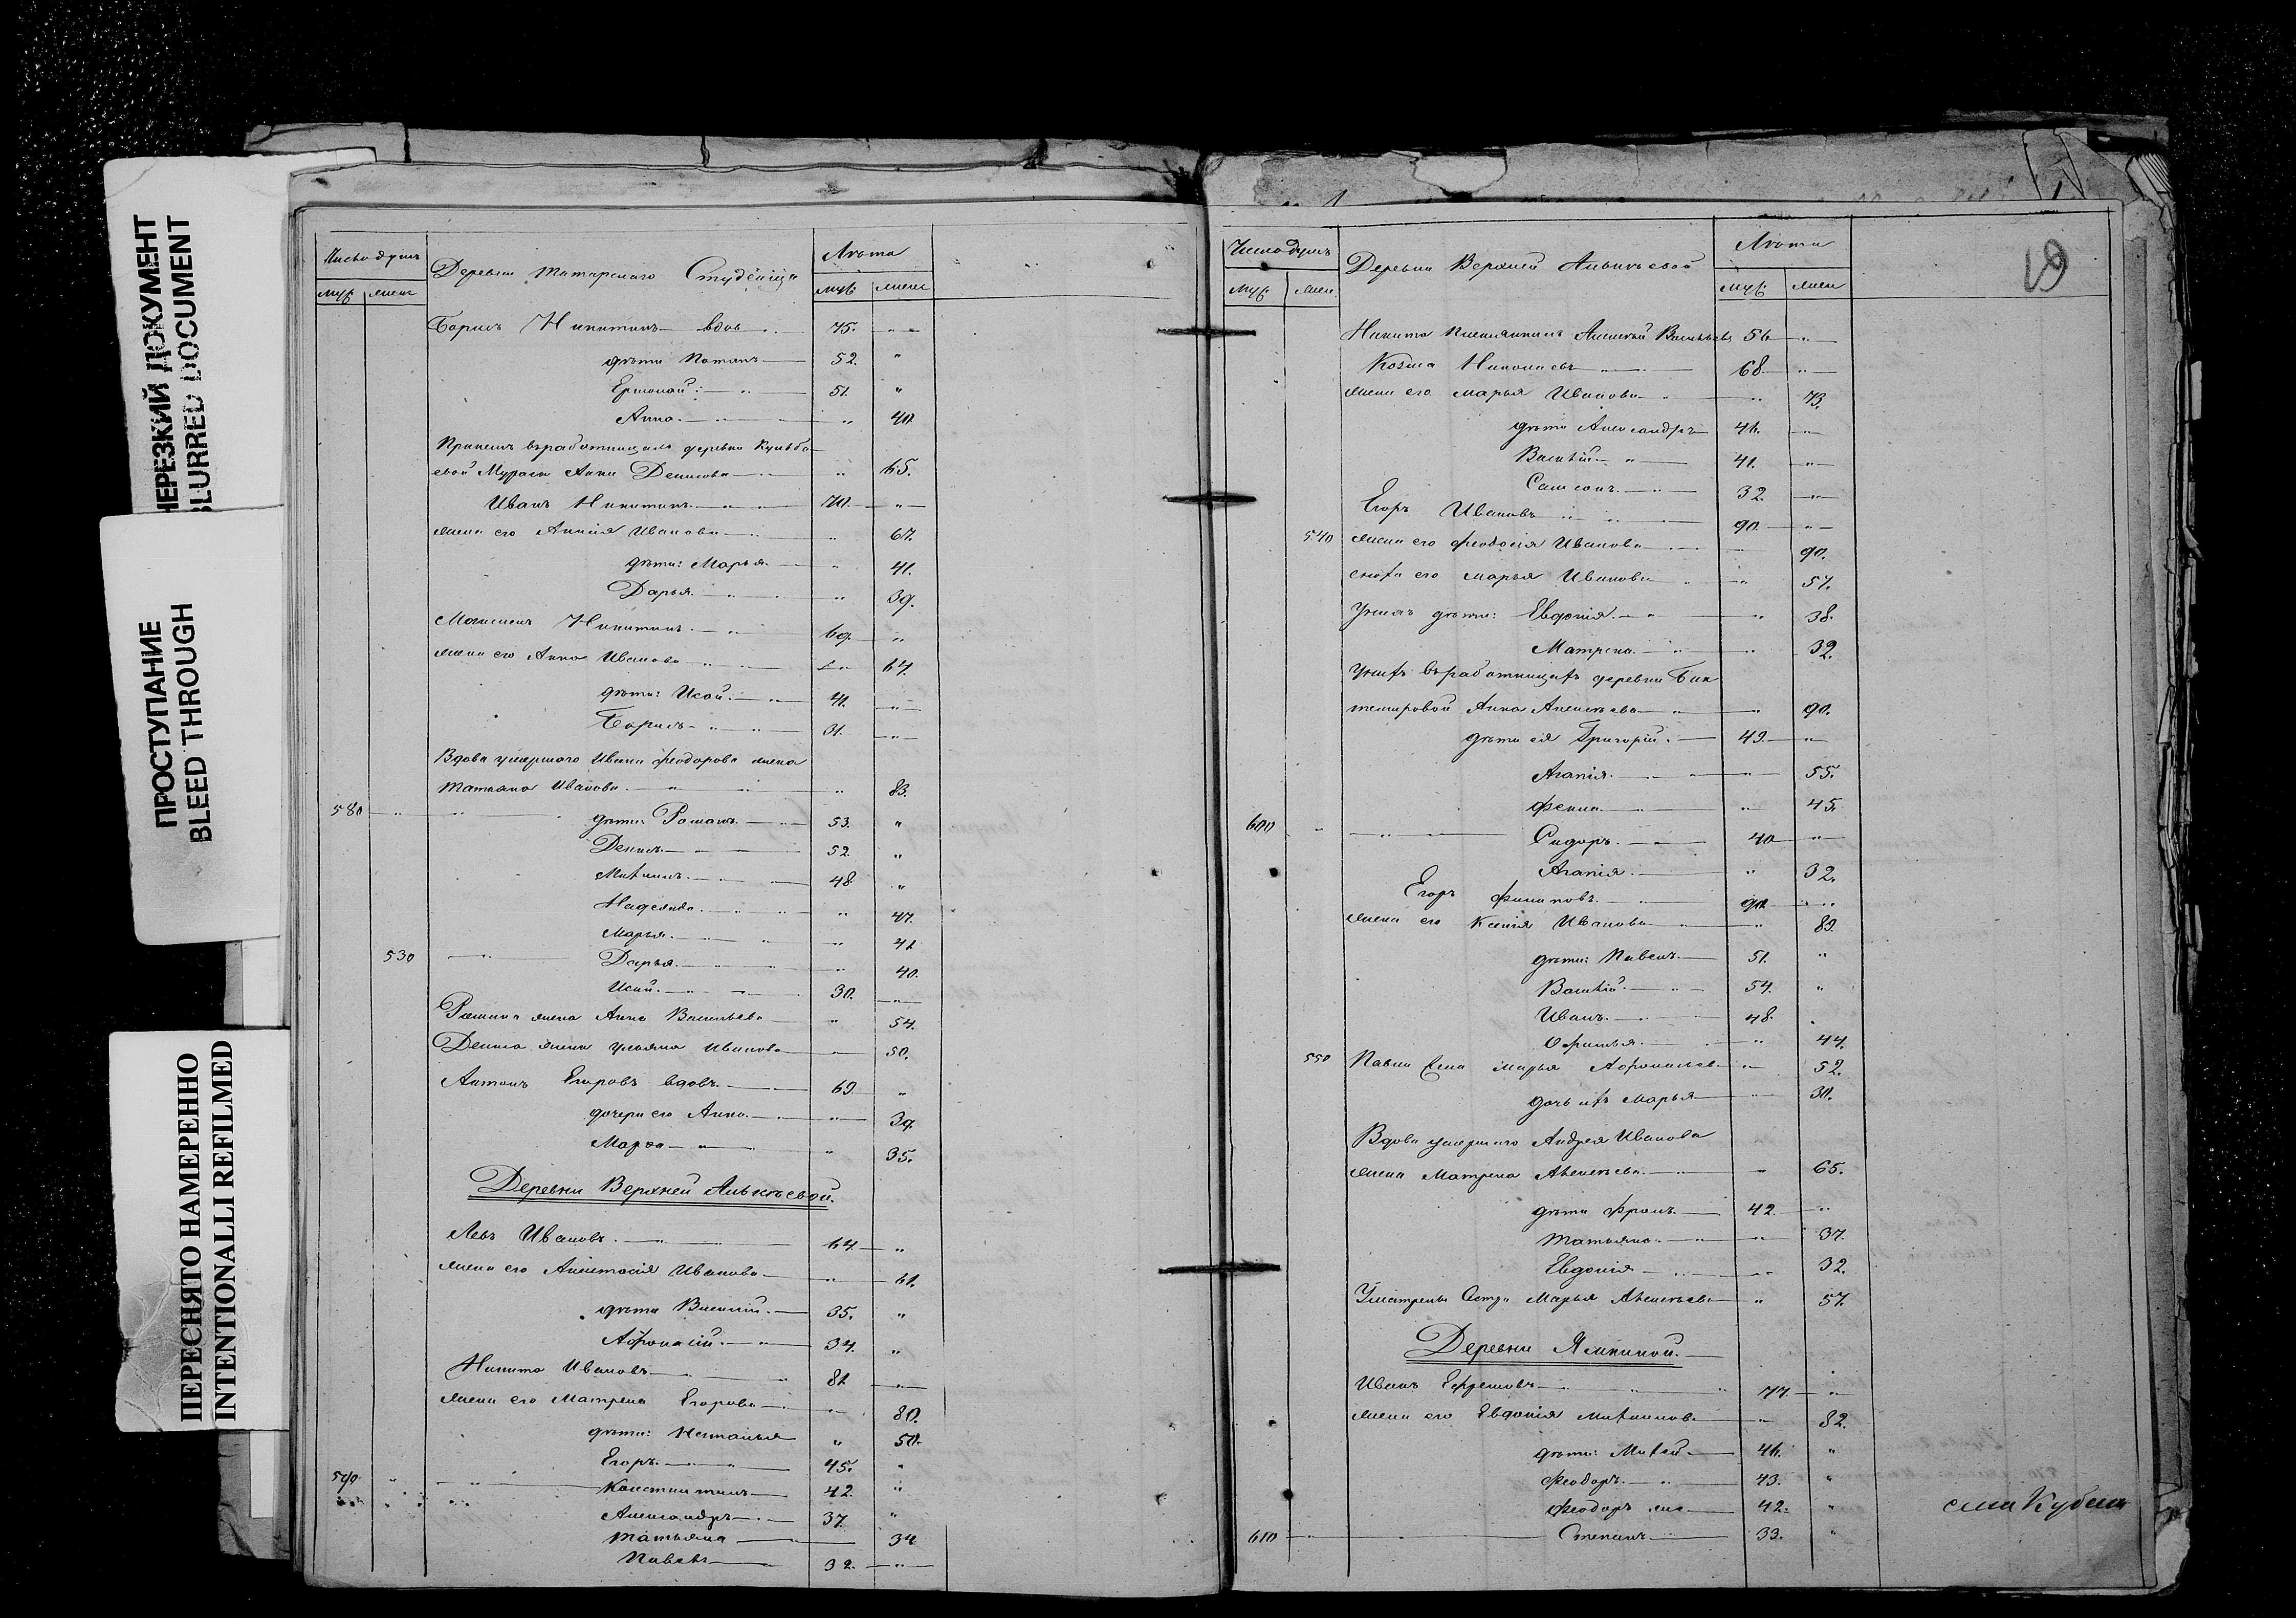 НЕРЕЗКИЙ ДОКУМЕНТ
BLURRED DOCUMENT
ПРОСТУПАНИЕ
BLEED THROUGH
ПЕРЕСНЯТО НАМЕРЕННО
INTENTIONALLI REFILMED
Число душъ Деревни Татарскаго Студенца Лѣта
муж жен муж жен
Борисъ Никитинъ вдов 45.
дѣти Потапъ 52. "
Ермолай: 51. "
Анна. " 40
деревни
Анна Денисова " 65.
Иванъ Никитинъ 70. "
жена его Иванова " 67.
дѣти: Марья. " 41.
Дарья. " 39.
Никитинъ. 69. "
жена его Анна Иванова 64.
дѣти: Исай. 41. "
Борисъ 31. "
Вдова умершаго Ивана Феодорова жена
Татьяна Иванова. " 83.
580 дѣти Романъ. 53. "
Денисъ. 52. "
Михаилъ. 48 "
Надежда. " 47.
Марья. " 41
530 Дарья. " 40.
Исай. 30. "
Романа жена Анна Васильева " 54.
Дениса жена Ульяна Иванова 50.
Антонъ Егоровъ вдовъ. 69 "
дочери его Анна. " 39
Марфа " 35.
Деревни Верхней Алькѣевой.
Левъ Ивановъ. 64 "
жена его Анастасія Иванова " 61.
дѣти Василій. 35. "
Афонасій. 34. "
Никита Ивановъ 81 "
жена его Матрена Егорова " 80.
дѣти: Наталья " 50.
Егоръ. 45. "
590 Константинъ 42. "
Александръ 37. "
Татьяна 34
Павелъ 32. "
19
Число душъ Деревни Верхней Алькѣевой Лѣта
муж жен муж жен
Никита племянникъ Алексѣй Васильевъ 56 "
Козма Николаевъ 68. "
жена его Марья Иванова " 73.
дѣти Александръ 46. "
Василій " 41. "
Самсонъ. 32. "
Егоръ Ивановъ 90. "
540 жена его Феодосія Иванова 90.
сноха его Марья Иванова " 57.
дѣти: Евдокія. " 38.
Матрена. " 32.
деревни Бик
темировой Анна Алексѣева 90.
дѣти ея Григорій. 49. "
Агапія. " 55.
Фекла. " 45.
600 " Сидоръ. 40 "
Агапія. " 32.
Егоръ Филиповъ. 90. "
жена его Ксенія Иванова " 89.
дѣти: Павелъ. 51. "
Василій. 54. "
Иванъ. 48.
" 44.
550 Павла жена Марья Афонасьева " 52.
дочь ихъ Марья 30.
Вдова умершаго Андрея Иванова
жена Матрена Алексѣева. " 65.
дѣти Фролъ. 42 "
Татьяна. " 37.
Евдокія 32.
Сестра Марья Алексѣева " 57.
Деревни Ямкиной.
Иванъ Ефремовъ 77. "
жена его Евдокія Михаилова " 82.
дѣти: 46. "
Феодоръ. 43. "
Феодоръ 42. "
610 Степанъ 33. "